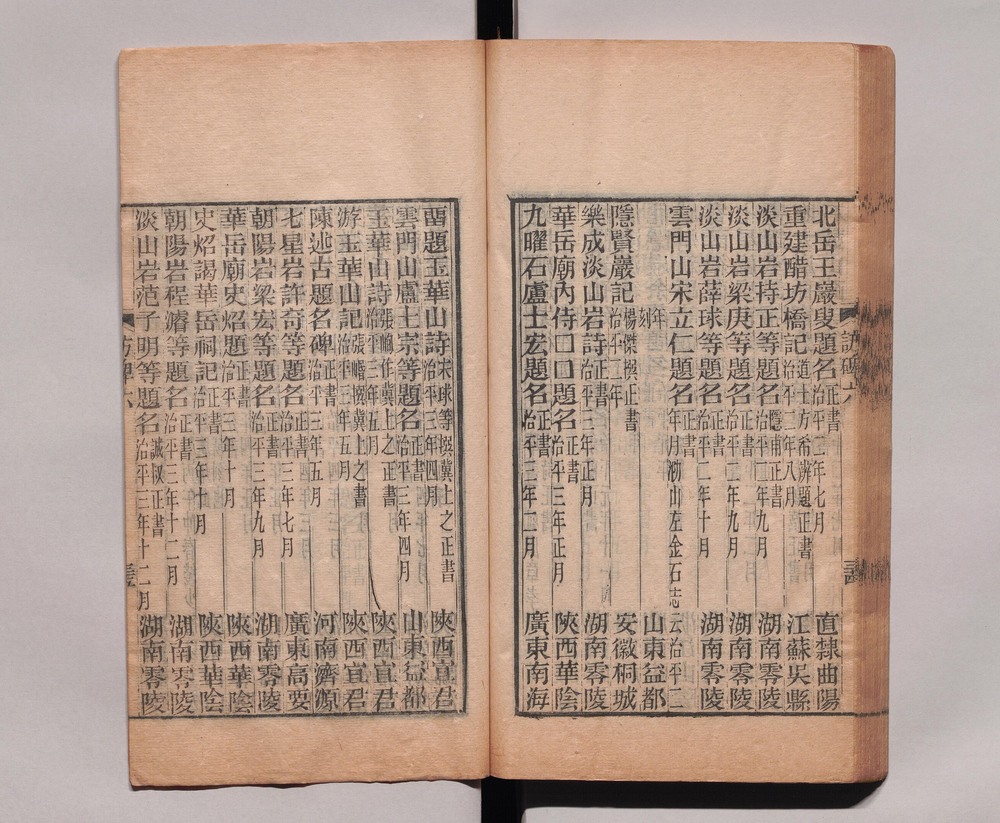 北岳王巖叟題名 正書 治平二年七月 直隸曲陽
重建醋坊橋記 道士方希濟題正書 治平二年八月 江蘇吳縣
淡山岩持正等題名 隱甫正書 治平二年九月 湖南零陵
淡山岩梁庚等題名 正書 治平二年九月 湖南零陵
淡山岩薛球等題名 正書 治平二年十月 湖南零陵
雲門山宋立仁題名 正書 年月泐山左金石志云治平二
年刻 山東益都
隱賢巖記 楊傑撰正書 治平二年 安徽桐城
樂成淡山岩詩 正書 治平三年正月 湖南零陵
華岳廟內侍口口題名 正書 治平三年正月 陝西華陰
九曜石盧士宏題名 正書 治平三年二月 廣東南海
題玉華山詩 宋球等撰冀上之正書 治平三年四月 陝西宜君
雲門山盧士宗等題名 正書 治平三年四月 山東益都
玉華山詩 張岷作冀上之正書 治平三年五月 陝西宜君
游玉華山記 張岷撰冀上之書 治平三年五月 陝西宜君
陳述古題名碑 正書 治平三年五月 河南濟源
七星岩許奇等題名 正書 治平三年七月 廣東高要
朝陽岩梁宏等題名 正書 治平三年九月 湖南零陵
華岳廟史炤題名 正書 治平三年十月 陝西華陰
史炤謁華岳祠記 正書 治平三年十月 陝西華陰
朝陽岩程濬等題名 正書 治平三年十二月 湖南零陵
淡山岩范子明等題名 誠叔正書 治平三年十二月 湖南零陵